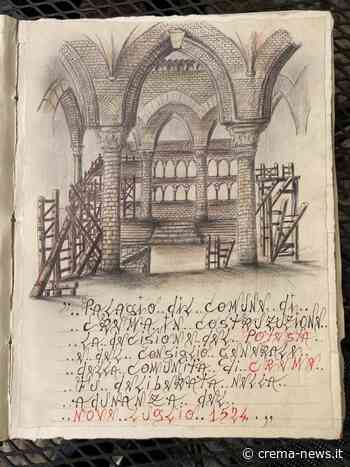 „.. PALAGIO.. DEL COMUNE.. DI..
.. CREMA.. IN.. COSTRUZIONE..
.. LA DECISIONE.. DEL.. POTESTÀ..
.. E.. DEL.. CONSIGLIO GENERALE..
.. DELLA COMUNITÀ.. DI.. CREMA..
.. FU.. DELIBERATA.. NELLA..
.. ADUNANZA.. DEL..
.. NOVE.. LUGLIO.. 1524.. „
crema-news.it